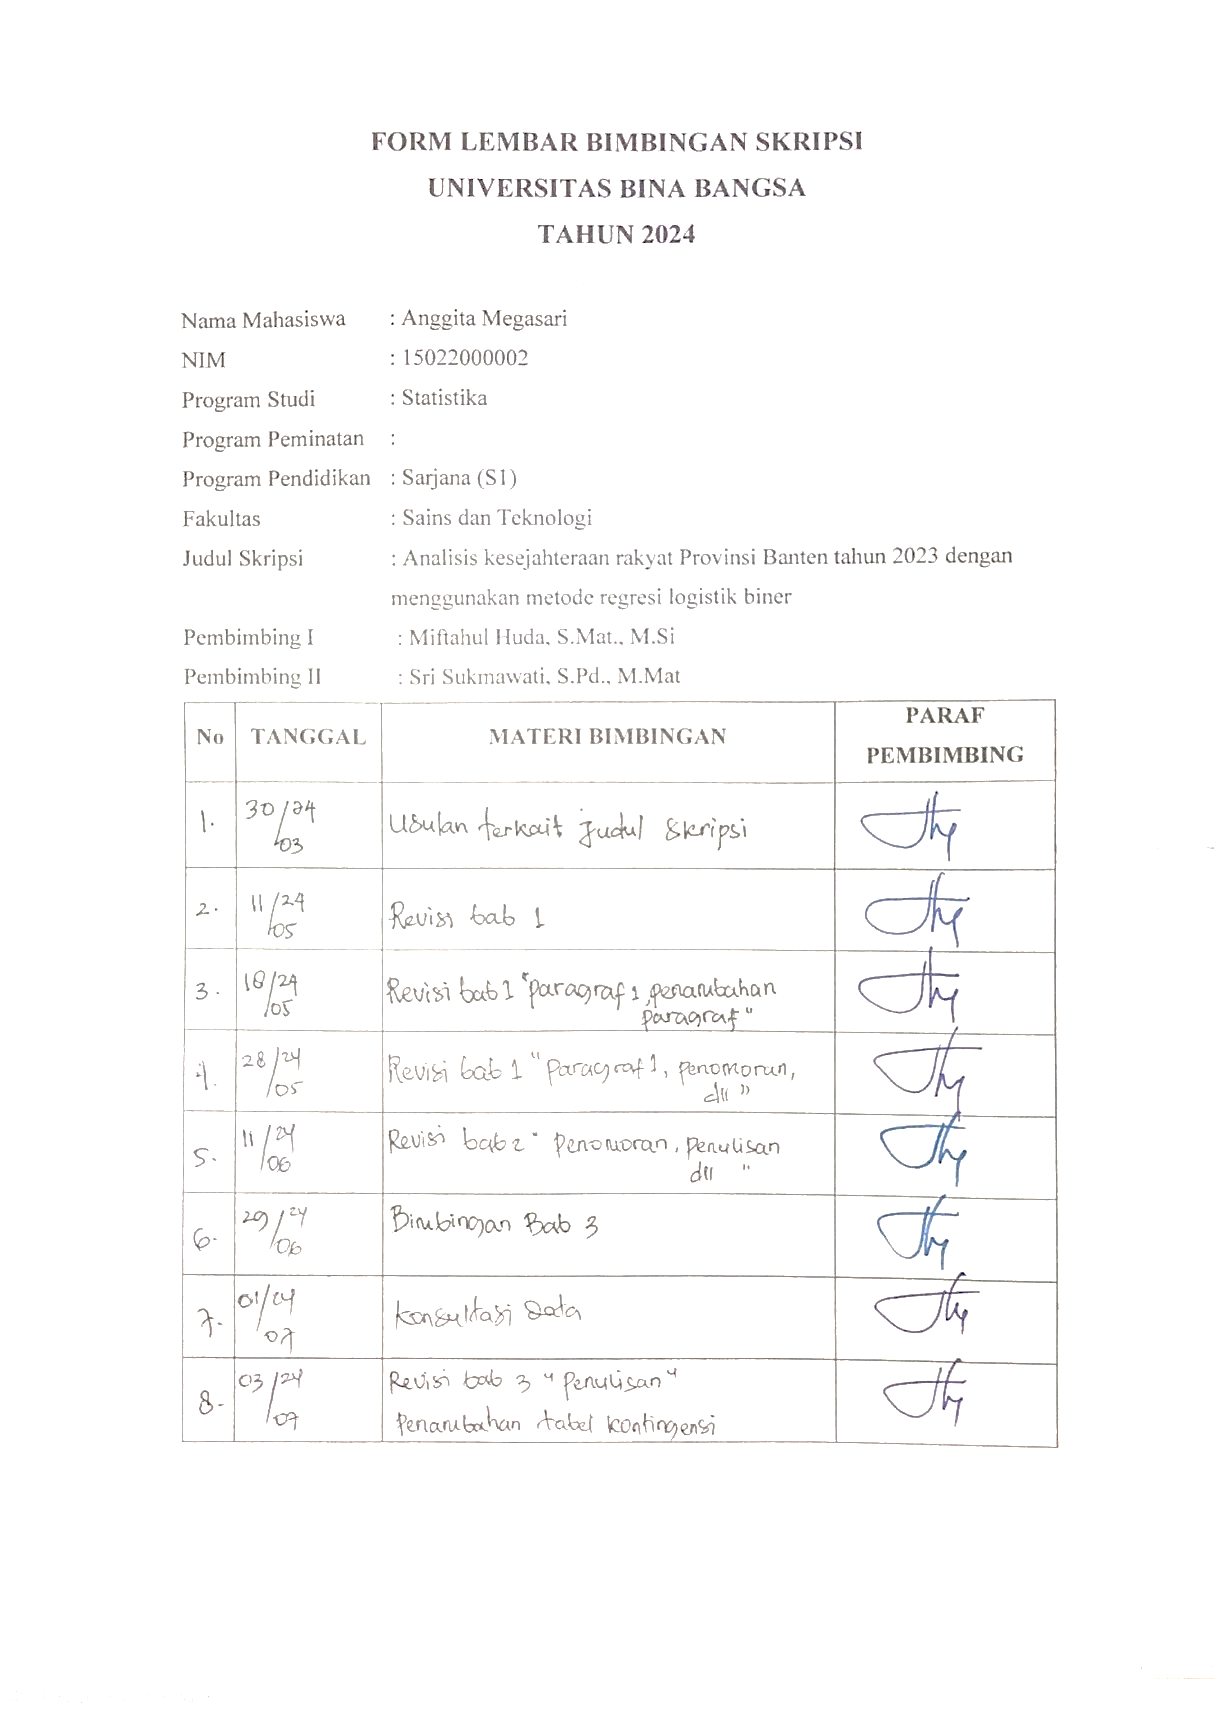 FORM LEMBAR BIMBINGAN SKRIPSI
UNIVERSITAS BINA BANGSA
TAHUN 2024
Nama Mahasiswa : Anggita Megasari
NIM : 15022000002
Program Studi : Statistika
Program Peminatan :
Program Pendidikan : Sarjana (S1)
Fakultas : Sains dan Teknologi
Judul Skripsi : Analisis kesejahteraan rakyat Provinsi Banten tahun 2023 dengan
menggunakan metode regresi logistik biner
Pembimbing I : Miftahul Huda, S.Mat., M.Si
Pembimbing II : Sri Sukmawati, S.Pd., M.Mat
No TANGGAL MATERI BIMBINGAN PARAF PEMBIMBING
1. 30/24 /03 Usulan terkait judul skripsi
2. 11/24 /05 Revisi bab 1
3. 18/24 /05 Revisi bab 1 "paragraf 1, penambahan
paragraf"
4. 28/24 /05 Revisi bab 1 "Paragraf 1, penomoran,
dll"
5. 11/24 /06 Revisi bab 2 "Penomoran, penulisan
dll"
6. 29/24 /06 Bimbingan Bab 3
7. 01/24 /07 Konsultasi Data
8. 03/24 /07 Revisi bab 3 "Penulisan"
Penambahan tabel kontingensi